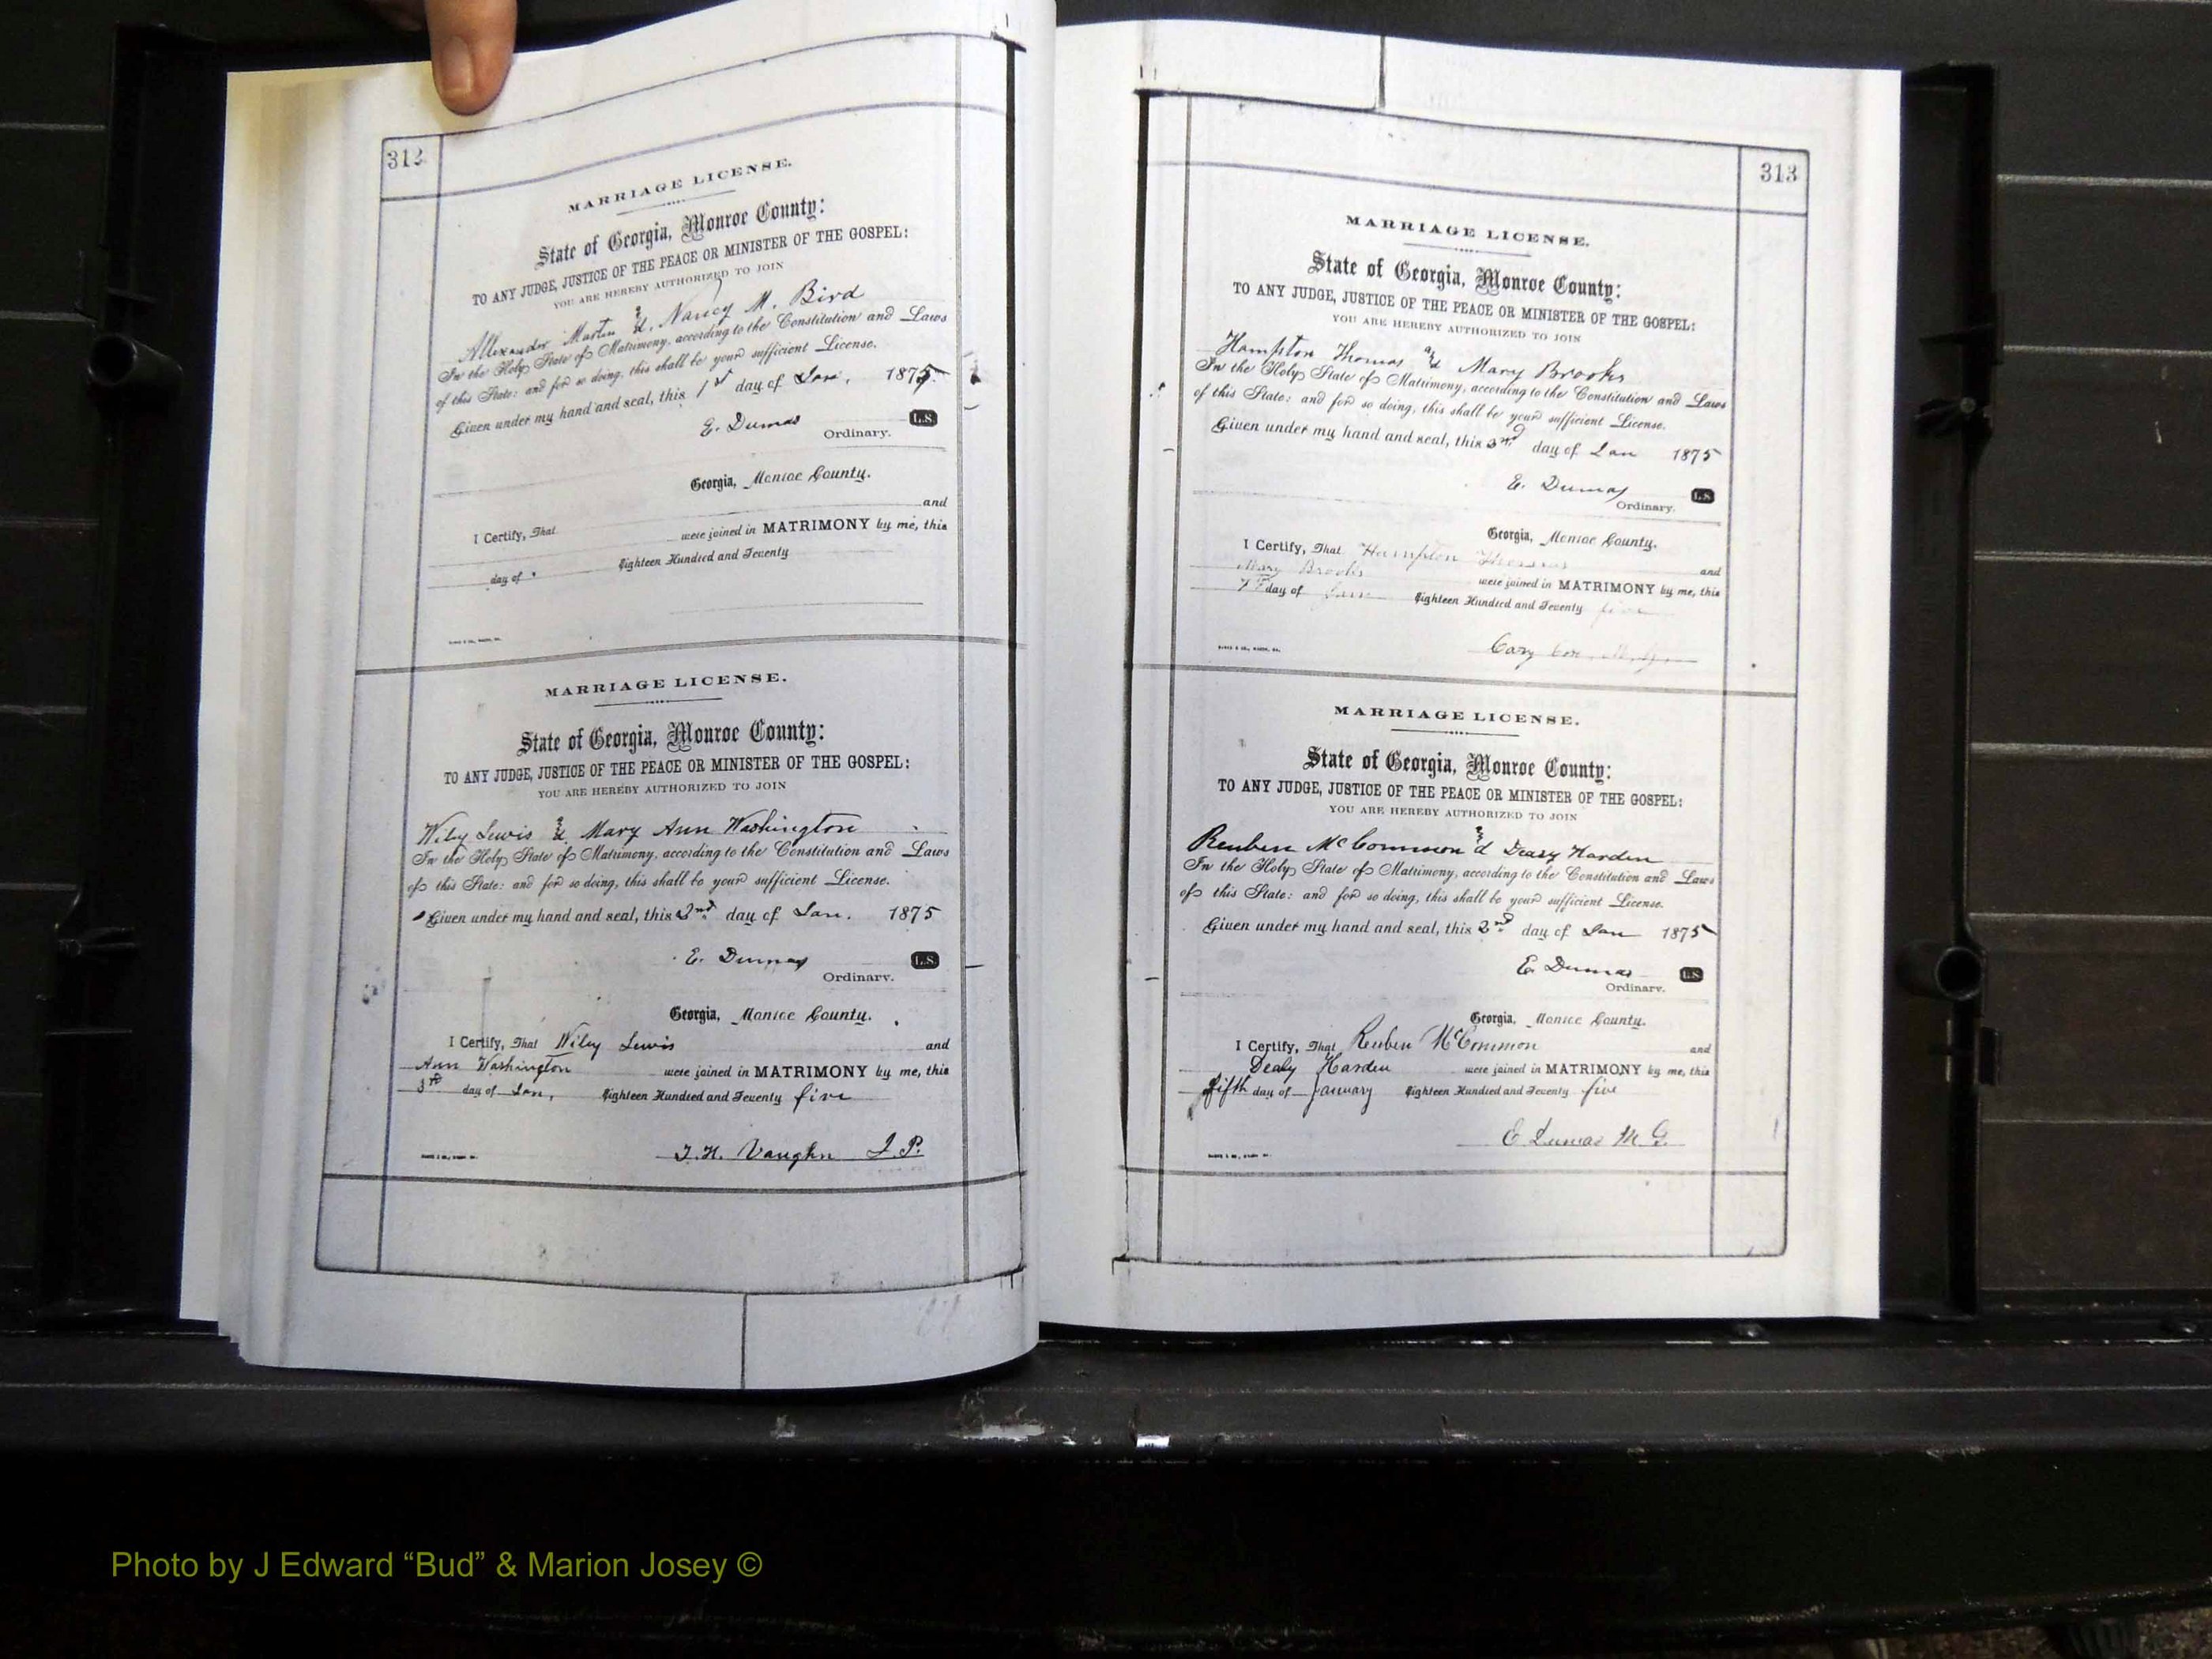 312
MARRIAGE LICENSE.
State of Georgia, Monroe County:
TO ANY JUDGE, JUSTICE OF THE PEACE OR MINISTER OF THE GOSPEL:
YOU ARE HEREBY AUTHORIZED TO JOIN
Allexander Martin & Nancy M. Bird
In the Holy State of Matrimony, according to the Constitution and Laws
of this State: and for so doing, this shall be your sufficient License.
Given under my hand and seal, this 1st day of Jan. 1875.
E. Dumas L.S.
Ordinary.
Georgia, Monroe County.
and
I Certify, That were joined in MATRIMONY by me, this
day of Eighteen Hundred and Seventy
MARRIAGE LICENSE.
State of Georgia, Monroe County:
TO ANY JUDGE, JUSTICE OF THE PEACE OR MINISTER OF THE GOSPEL:
YOU ARE HEREBY AUTHORIZED TO JOIN
Wiley Lewis & Mary Ann Washington
In the Holy State of Matrimony, according to the Constitution and Laws
of this State: and for so doing, this shall be your sufficient License.
Given under my hand and seal, this 2nd day of Jan. 1875
E. Dumas L.S.
Ordinary.
Georgia, Monroe County.
I Certify, That Wiley Lewis and
Ann Washington were joined in MATRIMONY by me, this
day of Jan, Eighteen Hundred and Seventy five
J. H. Vaughn J. P.
313
MARRIAGE LICENSE.
State of Georgia, Monroe County:
TO ANY JUDGE, JUSTICE OF THE PEACE OR MINISTER OF THE GOSPEL:
YOU ARE HEREBY AUTHORIZED TO JOIN
Hampton Thomas & Mary Brooks
In the Holy State of Matrimony, according to the Constitution and Laws
of this State: and for so doing, this shall be your sufficient License.
Given under my hand and seal, this day of Jan 1875
E. Dumas L.S.
Ordinary.
Georgia, Monroe County.
I Certify, That Hampton Thomas and
Mary Brooks were joined in MATRIMONY by me, this
7th day of Jan Eighteen Hundred and Seventy five
Cary Cox
MARRIAGE LICENSE.
State of Georgia, Monroe County:
TO ANY JUDGE, JUSTICE OF THE PEACE OR MINISTER OF THE GOSPEL:
YOU ARE HEREBY AUTHORIZED TO JOIN
Reuben McCommon & Harden
In the Holy State of Matrimony, according to the Constitution and Laws
of this State: and for so doing, this shall be your sufficient License.
Given under my hand and seal, this 2nd day of Jan 1875
E. Dumas L.S.
Ordinary.
Georgia, Monroe County.
I Certify, That Reuben McCommon and
Dealy Harden were joined in MATRIMONY by me, this
fifth day of January Eighteen Hundred and Seventy five
E Dumas M. G.
Photo by J Edward “Bud” & Marion Josey ©